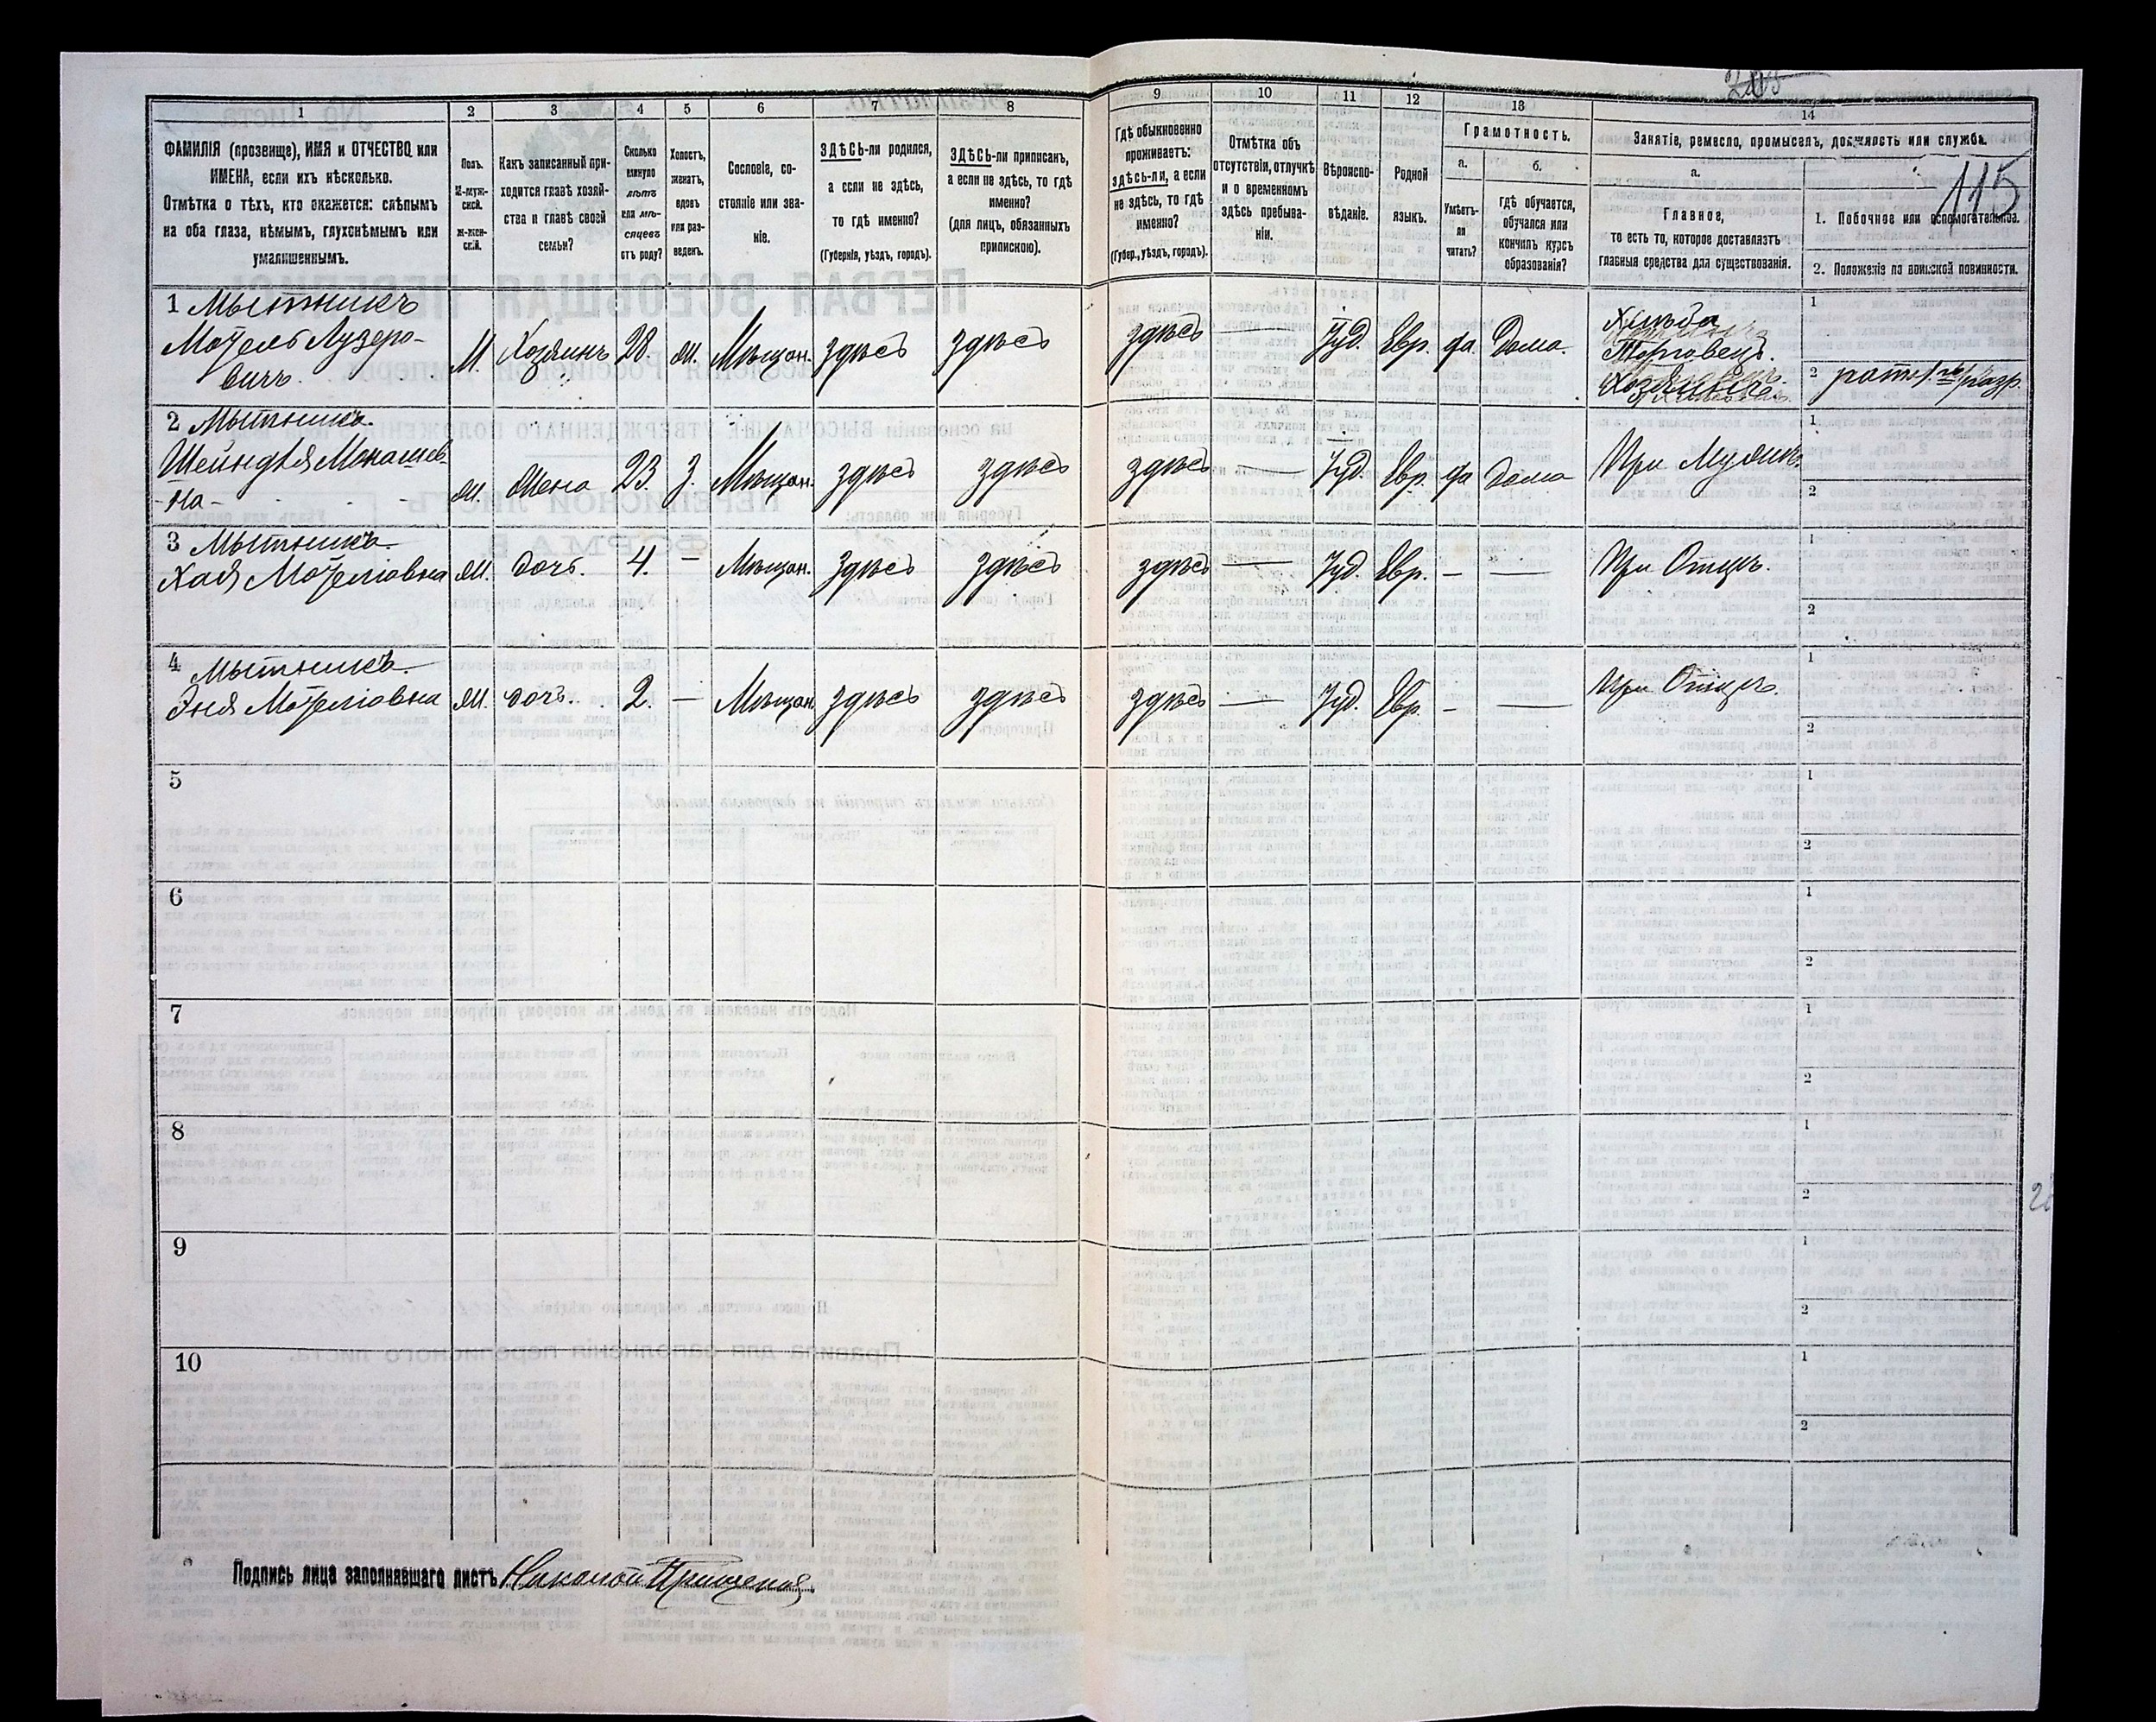 205
115
1
2
3
4
5
6
7
8
9
10
11
12
13
14
ФАМИЛІЯ (прозвище), ИМЯ и ОТЧЕСТВО или
ИМЕНА, если ихъ нѣсколько.
Отмѣтка о тѣхъ, кто окажется: слѣпымъ
на оба глаза, нѣмымъ, глухонѣмымъ или
умалишеннымъ.
Полъ.
М-муж-
ской.
Ж-жен-
скій.
Какъ записанный при-
ходится главѣ хозяй-
ства и главѣ своей
семьи?
Сколько
минуло
лѣтъ
или мѣ-
сяцевъ
отъ роду?
Холостъ,
женатъ,
вдовъ
или раз-
веденъ.
Сословіе, со-
стояніе или зва-
ніе.
ЗДѢСЬ-ли родился,
а если не здѣсь,
то гдѣ именно?
(Губернія, уѣздъ, городъ).
ЗДѢСЬ-ли приписанъ,
а если не здѣсь, то гдѣ
именно?
(для лицъ, обязанныхъ
припискою).
Гдѣ обыкновенно
проживаетъ:
здѣсь-ли, а если
не здѣсь, то гдѣ
именно?
(Губер., уѣздъ, городъ).
Отмѣтка объ
отсутствіи, отлучкѣ
и о временномъ
здѣсь пребыва-
ніи.
Вѣроиспо-
вѣданіе.
Родной
языкъ.
Грамотность.
а.
Умѣетъ-
ли
читать?
б.
гдѣ обучается,
обучался или
кончилъ курсъ
образованія?
Занятіе, ремесло, промыселъ, должность или служба.
а.
Главное,
то есть то, которое доставляетъ
главныя средства для существованія.
1. Побочное или вспомогательное.
2. Положеніе по воинской повинности.
1 Мытникъ
Мотель Лузеро-
вичъ.
М. Хозяинъ 28. ж. Мѣщан. здѣсь здѣсь здѣсь — Іуд. Евр. да Дома.
Хлѣба
Торговецъ.
Хозяинъ
1
2
2 Мытникъ.
Шейндля
-на-
ж. Жена 23. з. Мѣщан. здѣсь здѣсь здѣсь — Іуд. Евр. да Дома При Мужѣ.
1
2
3 Мытникъ.
Хая Мотелiовна ж. дочь. 4. — Мѣщан. здѣсь здѣсь здѣсь — Іуд. Евр. — — При Отцѣ.
1
2
4 Мытникъ.
Эня Мотелiовна ж. дочь. 2. — Мѣщан. здѣсь здѣсь здѣсь — Іуд. Евр. — — При Отцѣ.
1
2
5
1
2
6
1
2
7
1
2
8
1
2
9
1
2
10
1
2
Подпись лица заполнявшаго листъ